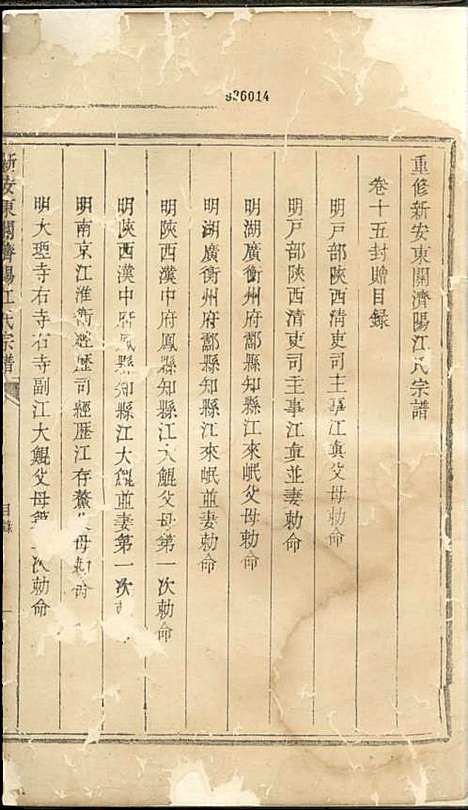 936014
重修新安東關濟陽江氏宗譜
卷十五封贈目錄
明戶部陝西清吏司主事江眞父母勅命
明戶部陝西清吏司主事江眞並妻勅命
明湖廣衡州府酃縣知縣江來岷父母勅命
明湖廣衡州府酃縣知縣江來岷並妻勅命
明陝西漢中府鳳縣知縣江大鯤父母第一次勅命
明陝西漢中府鳳縣知縣江大鯤並妻第一次
明南京江淮衛經歷司經歷江存鰲父母勅命
明大理寺右寺右寺副江大鯤父母第二次勅命
新安東關濟陽江氏宗譜
目錄
一